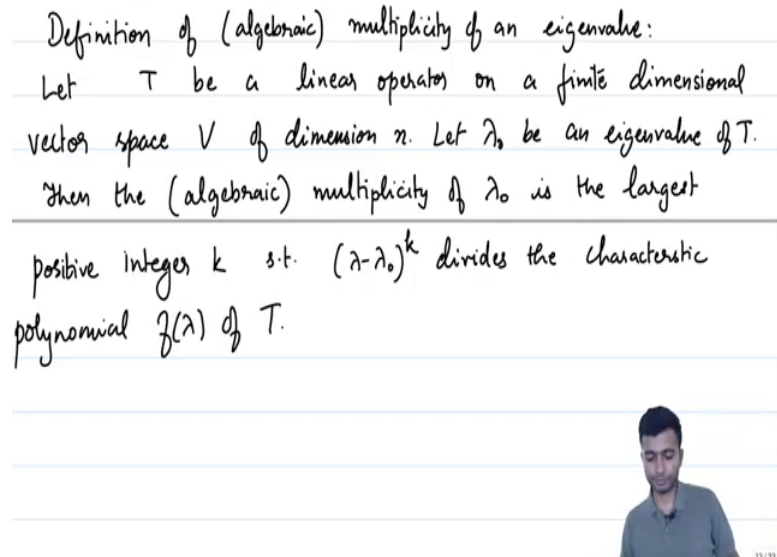 Definition of (algebraic) multiplicity of an eigenvalue:
Let T be a linear operator on a finite dimensional
vector space V of dimension n. Let λ₀ be an eigenvalue of T.
Then the (algebraic) multiplicity of λ₀ is the largest
positive integer k s.t. (λ-λ₀)ᵏ divides the characterstic
polynomial f(λ) of T.